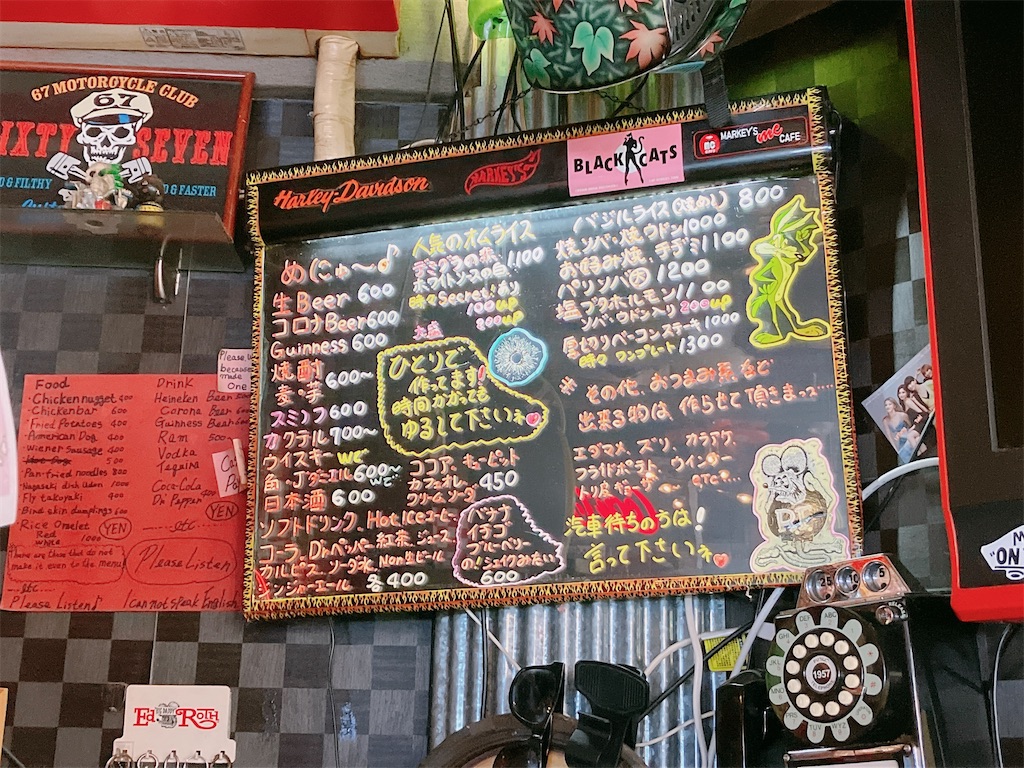 67 MOTORCYCLE CLUB
67
SIXTY SEVEN
& FILTHY
& FASTER
Harley-Davidson
MARKEY'S
BLACK CATS
MARKEY'S me CAFE
めにゅ〜♪
生Beer 600
コロナBeer 600
Guinness 600
焼酎
麦・芋 600〜
スミノフ 600
カクテル 700〜
ウイスキー
角、J.ダニエル 600〜
日本酒 600
ソフトドリンク、Hot,Iceコーヒー
コーラ、Dr.ペッパー、紅茶、ジュース
カルピス、ソーダ水、Non生ビール
ジンジャーエール 各400
人気のオムライス
デミグラの赤
ホワイトソースの白 1100
時々Secretもあり
100up
大盛 200up
ひとりで
作ってます!
時間かかっても
ゆるして下さいネ
ココア、キューピット
カフェオレ 450
クリームソーダ
バナナ
イチゴ
ブルーベリー
の!シェイクみたいな
600
バジルライス(大盛めし) 800
焼ソバ・焼ウドン 1000
お好み焼・チヂミ 1100
パリソバ 1200
塩ブタホルモン 1100
ソバ・ウドン入り 200up
厚切りベーコンステーキ 1000
時々 ワンプレート 1300
※ その他、おつまみ系など
出来る物は 作らせて頂きまっ…
エダマメ、ズリ、カラアゲ、
フライドポテト、ウインナー
etc…
汽車待ちの方は!
言って下さいネ
Food
・Chicken nugget 400
・Chickenbar 600
・Fried Potatoes 400
・American Dog 400
・Wiener sausage 400
500
・Pan-fried noodles 800
・Nagasaki dish Udon 1000
・Fly takoyaki 400
・Bird skin dumplings 600
・Rice Omelet (YEN)
Red
White 1000
There are those that do not
make it even to the menu
etc
Please Listen♪
Drink
Heineken Beer
Corona Beer 600
Guinness Beer 600
Ram 500
Vodka
Tequira
Coca-Cola
Dr Pepper 400
(YEN)
etc
Please Listen
I can not speak English
Please
because
made
One
Ed Roth
25
1957
"ON